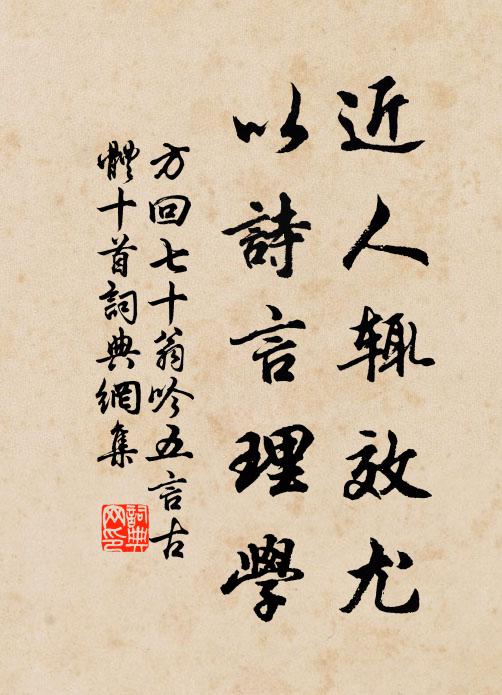 近人辄效尤
以詩言理學
方回七十翁吟五言古
體十首詞典網集
詞典网印